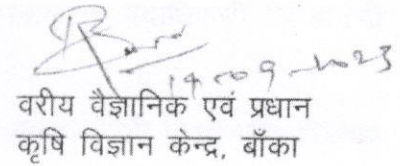 14-09-2023
वरीय वैज्ञानिक एवं प्रधान
कृषि विज्ञान केन्द्र, बाँका